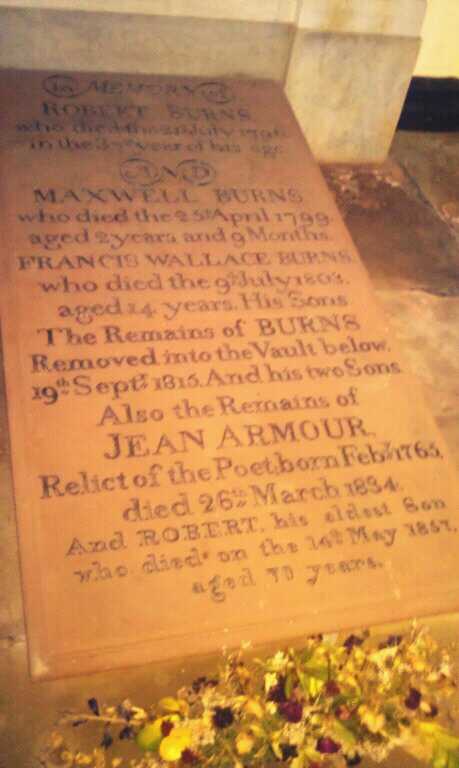 In MEMORY of
ROBERT BURNS
who died the 21st July 1796
in the 37th year of his age
AND
MAXWELL BURNS
who died the 25th April 1799.
aged 2 years and 9 Months.
FRANCIS WALLACE BURNS
who died the 9th July 1803.
aged 14 years. His Sons
The Remains of BURNS
Removed into the Vault below.
19th Septr 1815. And his two Sons
Also the Remains of
JEAN ARMOUR.
Relict of the Poet born Feby 1765.
died 26th March 1834.
And ROBERT, his eldest Son
who died on the 14th May 1857.
aged 70 years.